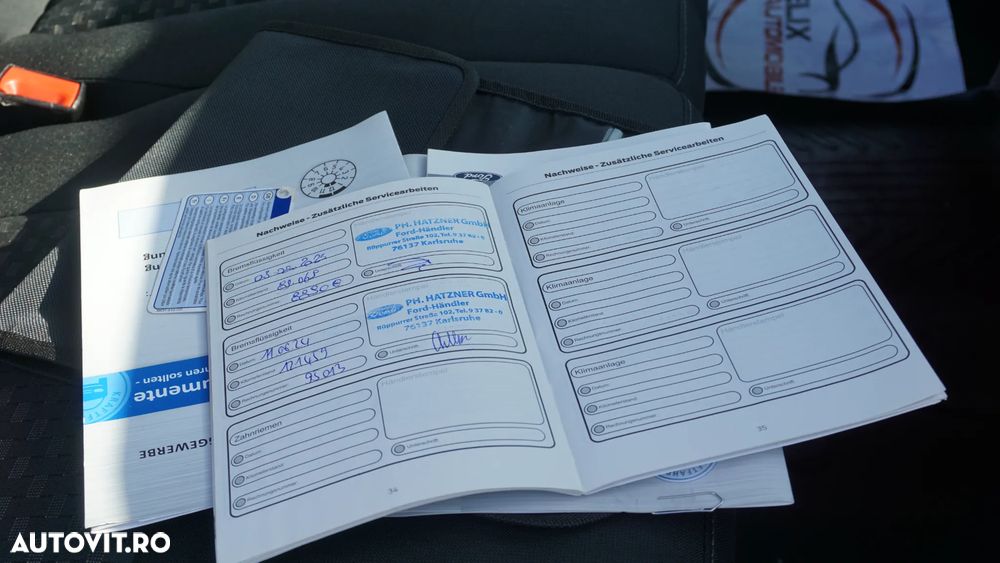 ELIX
AUTOMOBILE
Ford
Nachweise - Zusätzliche Servicearbeiten
Bremsflüssigkeit
Datum
Kilometerstand
Rechnungsnummer
Ford
PH. HATZNER GmbH
Ford-Händler
Rüppurrer Straße 102, Tel. 9 37 82 - 0
76137 Karlsruhe
Unterschrift
Bremsflüssigkeit
Datum
11.06.24
Kilometerstand
121459
Rechnungsnummer
95013
Händlerstempel
Ford
PH. HATZNER GmbH
Ford-Händler
Rüppurrer Straße 102, Tel. 9 37 82 - 0
76137 Karlsruhe
Unterschrift
Zahnriemen
Datum
Kilometerstand
Rechnungsnummer
Händlerstempel
Unterschrift
34
Nachweise - Zusätzliche Servicearbeiten
Klimaanlage
Datum
Kilometerstand
Rechnungsnummer
Händlerstempel
Unterschrift
Klimaanlage
Datum
Kilometerstand
Rechnungsnummer
Händlerstempel
Unterschrift
Klimaanlage
Datum
Kilometerstand
Rechnungsnummer
Händlerstempel
Unterschrift
35
umente
hren sollten -
KRAFTFA
GEWERBE
AUTOVIT.RO